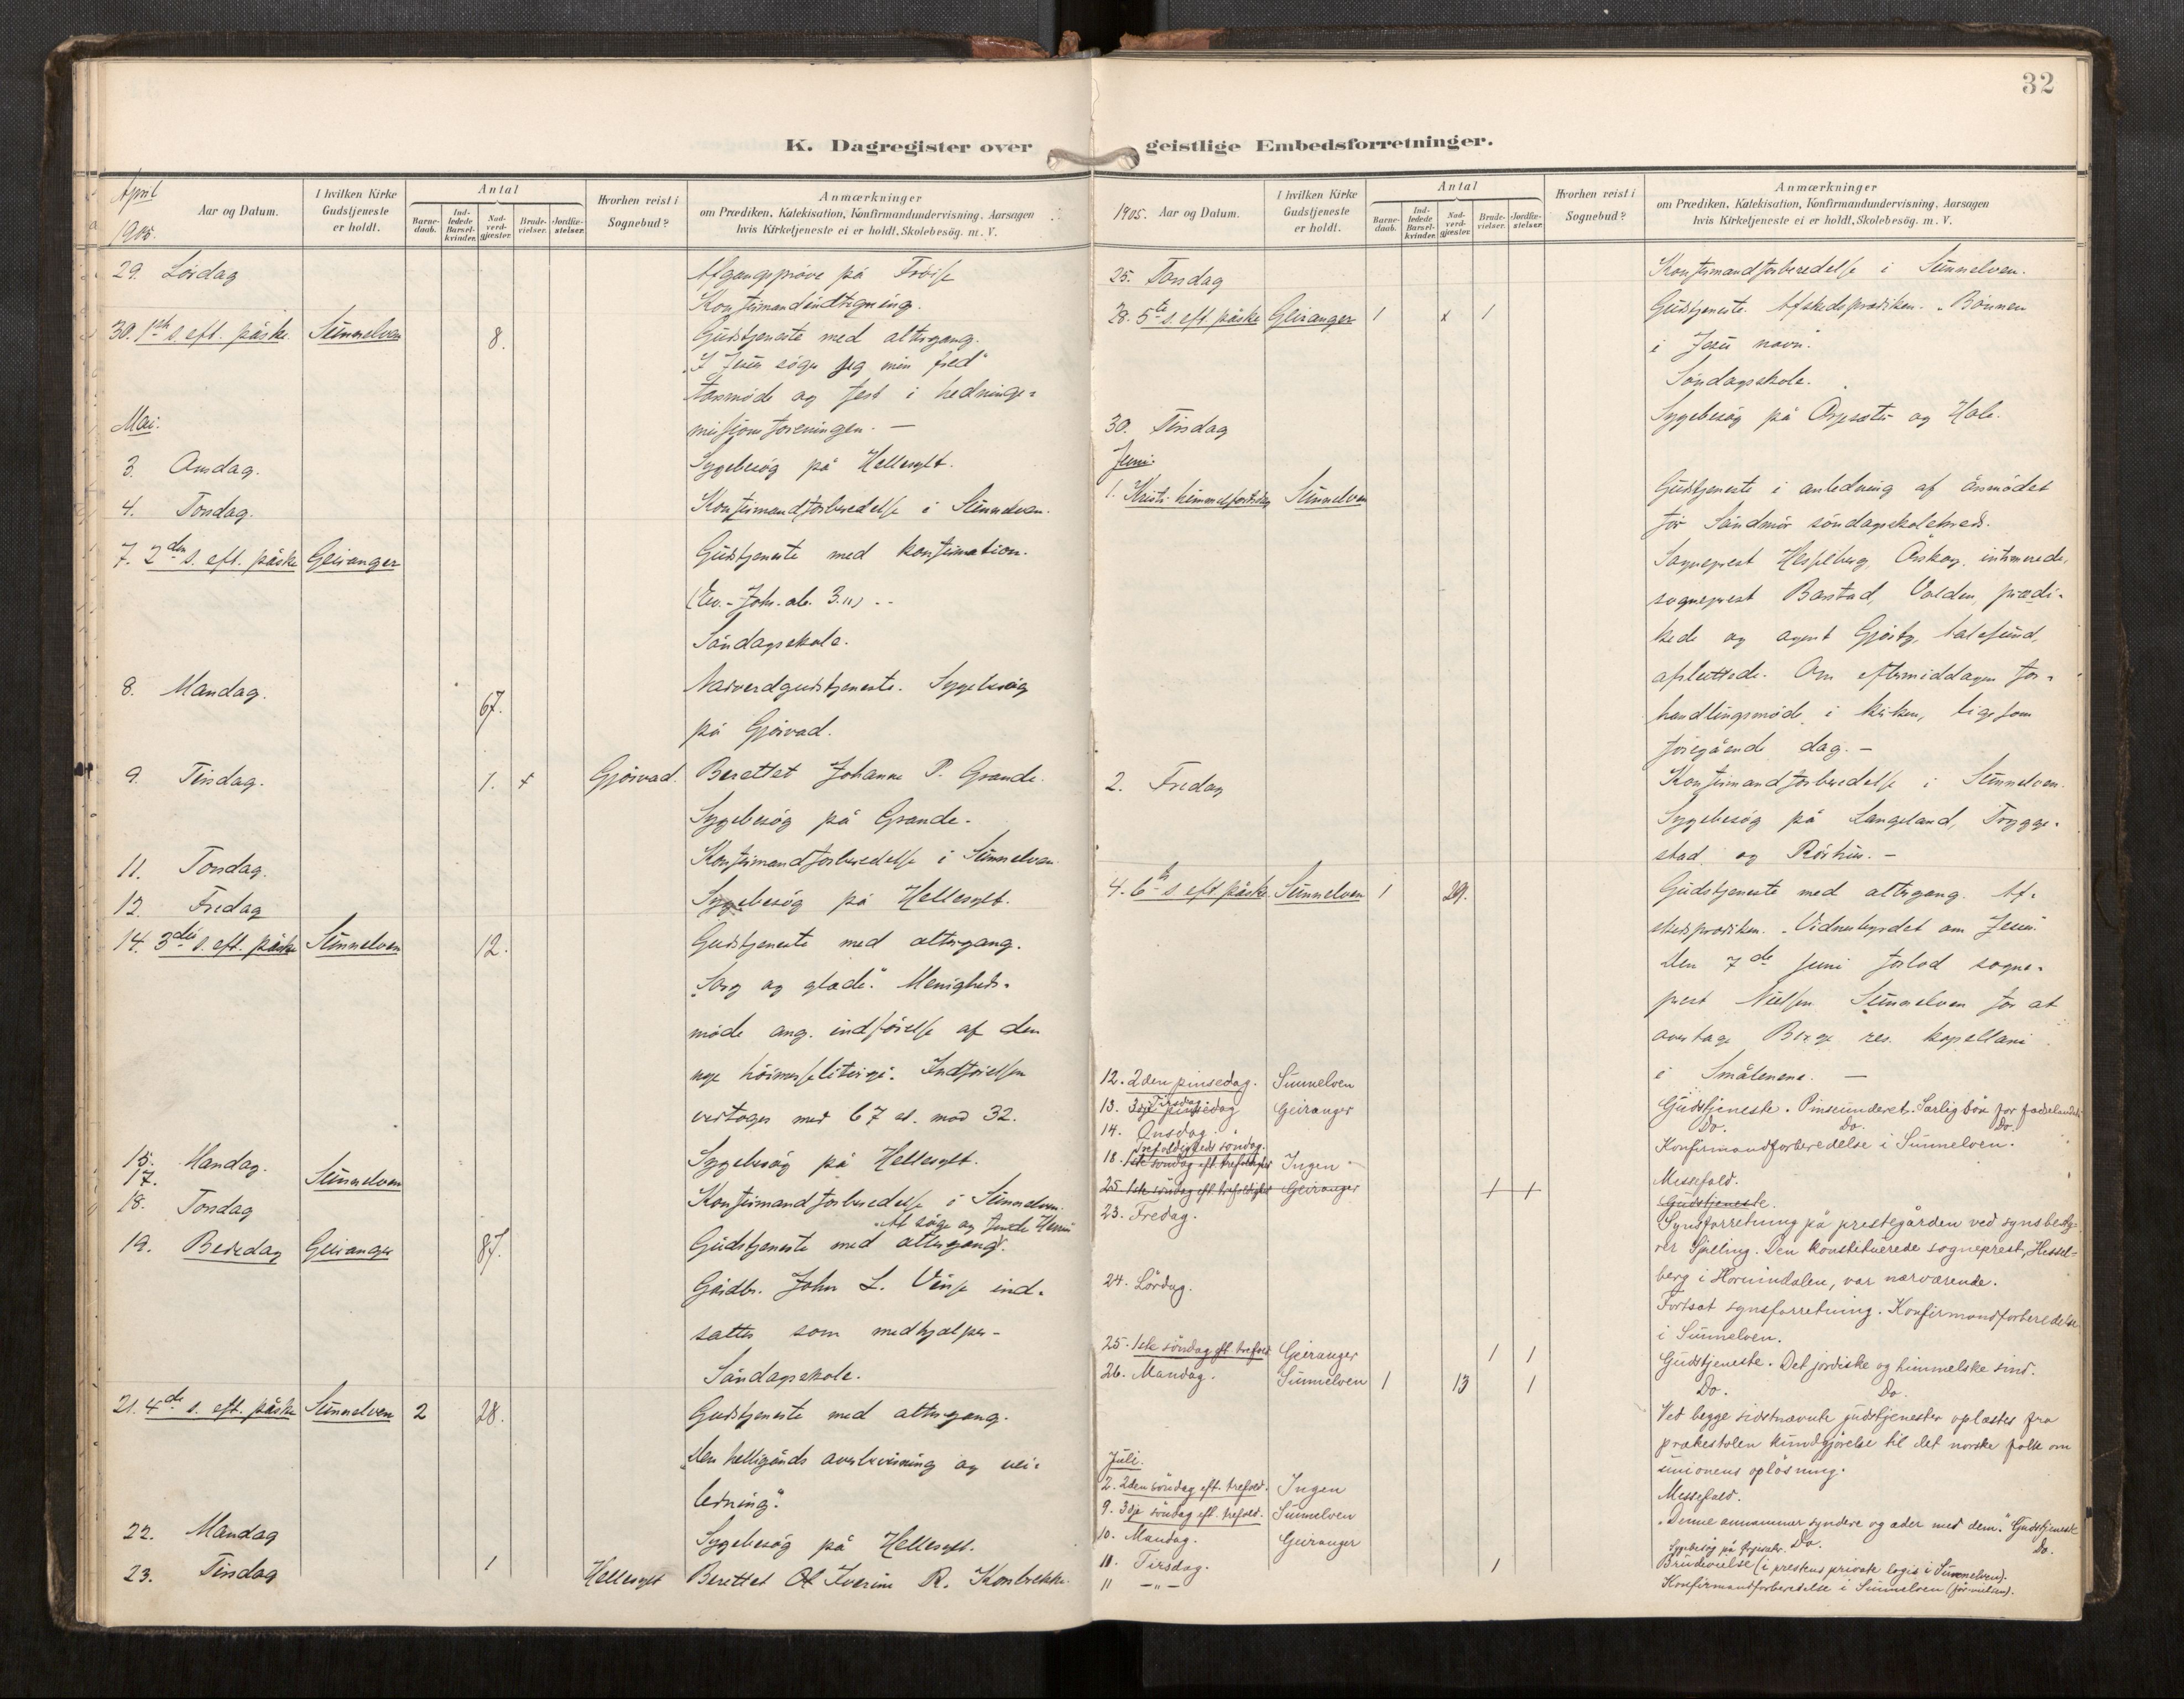 32
K. Dagregister over geistlige Embedsforretninger.
April 1905.
Aar og Datum.
I hvilken Kirke Gudstjeneste er holdt.
Antal
Barnedaab. Indledede Barselkvinder. Nadverdgjæster. Brudevielser. Jordfæstelser.
Hvorhen reist i Sognebud?
Anmærkninger
om Prædiken, Katekisation, Konfirmandundervisning, Aarsagen
hvis Kirketjeneste ei er holdt, Skolebesøg. m. V.
29. Lördag Afgangspröve på
Konfirmandindtegning.
30. 1ste s. eft. påske. Sunnelven 8. Gudstjeneste med altergang.
"I Jesu söger jeg min fred"
Årsmöde og fest i hedninge-
missionsforeningen. —
Mai.
3. Onsdag. Sygebesög på Hellesylt.
4. Torsdag. Konfirmandforberedelse i Sunnelven.
7. 2den s. eft. påske Geiranger Gudstjeneste med konfirmation.
(Ev. Joh. ab. 3.11) ..
Söndagsskole.
8. Mandag. 67. Nadverdgudstjeneste. Sygebesög
på Gjörvad.
9. Tirsdag. 1. + Gjörvad. Berettet Johanne P. Grande.
Sygebesög på Grande.
11. Torsdag. Konfirmandforberedelse i Sunnelven
12. Fredag Sygebesög på Hellesylt.
14. 3die s. eft. påske Sunnelven 12. Gudstjeneste med altergang.
"Sorg og glæde." Menigheds-
möde ang. indförelse af den
nye höimesseliturgi. Indförelsen
vedtoges med 67 st. mod 32.
15. Mandag. Sygebesög på Hellesylt.
17. Sunnelven
18. Torsdag Konfirmandforberedelse i Sunnelven.
"At söge og finde Herren"
19. Bededag Geiranger 87. Gudstjeneste med altergang.
Gårdbr. John L. Vinje ind-
sattes som medhjælper-
Söndagsskole.
21. 4de s. eft. påske Sunnelven 2 28. Gudstjeneste med altergang.
"Den helligånds overbevisning og vei-
ledning".
22. Mandag Sygebesög på Hellesylt.
23. Tirsdag 1 Hellesylt Berettet Iverine R.
1905. Aar og Datum.
I hvilken Kirke Gudstjeneste er holdt.
Antal
Barnedaab. Indledede Barselkvinder. Nadverdgjæster. Brudevielser. Jordfæstelser.
Hvorhen reist i Sognebud?
Anmærkninger
om Prædiken, Katekisation, Konfirmandundervisning, Aarsagen
hvis Kirketjeneste ei er holdt, Skolebesøg. m. V.
25. Torsdag Konfirmandforberedelse i Sunnelven.
28. 5te s. eft. påske Geiranger 1 x 1 Gudstjeneste. Afskedsprædiken. "Bönnen
i Jesu navn."
Söndagsskole.
30. Tirsdag Sygebesög på og Hole.
Juni.
1. Kristi himmelfartsdag Sunnelven Gudstjeneste i anledning af årsmödet
for Söndmör söndagsskolekreds.
Sogneprest Hesselberg, Örskog, intimerede,
sogneprest Barstad, Volden, prædi-
kede og agent Ålesund,
afsluttede. Om eftermiddagen for-
handlingsmöde i kirken, ligesom
foregående dag. —
2. Fredag Konfirmandforberedelse i Sunnelven.
Sygebesög på Langeland, Trygge-
stad og Röshus. —
4. 6te s. eft. påske. Sunnelven 1 29. Gudstjeneste med altergang. Af-
skedsprædiken. "Vidnesbyrdet om Jesus."
Den 7de juni forlod sogne-
prest Nielsen Sunnelven for at
overtage Berge res. kapellani
i Smålenene. —
12. 2den pinsedag. Sunnelven Gudstjeneste. Pinseunderet. Særlig bön for fædrelandet.
13. Tirsdag. 3dje pinsedag Geiranger Do. Do. Do.
14. Onsdag. Konfirmandforberedelse i Sunnelven.
Trefoldigheds söndag.
18. 1ste söndag eft. trefoldighet Ingen Messefald.
25. 1ste söndag eft. trefoldighet Geiranger 1 1 Gudstjeneste.
23. Fredag. Synsforretning på prestegården ved synsbesty-
rer Sjöling. Den konstituerede sogneprest, Hessel-
berg i Hornindalen, var nærværende.
24. Lördag. Fortsat synsforretning. Konfirmandforberedelse
i Sunnelven.
25. 1ste söndag eft. trefold. Geiranger 1 1 Gudstjeneste. Det jordiske og himmelske sind.
26. Mandag. Sunnelven 1 13 1 Do. Do.
Ved begge sidstnævnte gudstjenester oplæstes fra
prækestolen kundgjörelse til det norske folk om
unionens oplösning.
Juli.
2. 2den söndag eft. trefold. Ingen Messefald.
9. 3dje söndag eft. trefold. Sunnelven "Denne annammer syndere og æder med dem." Gudstjeneste
10. Mandag. Geiranger Do. Do.
Sygebesög på
11. Tirsdag. 1 Brudevielse (i prestens private logis i Sunnelven).
11 —"— Konfirmandforberedelse i Sunnelven (för vielsen).